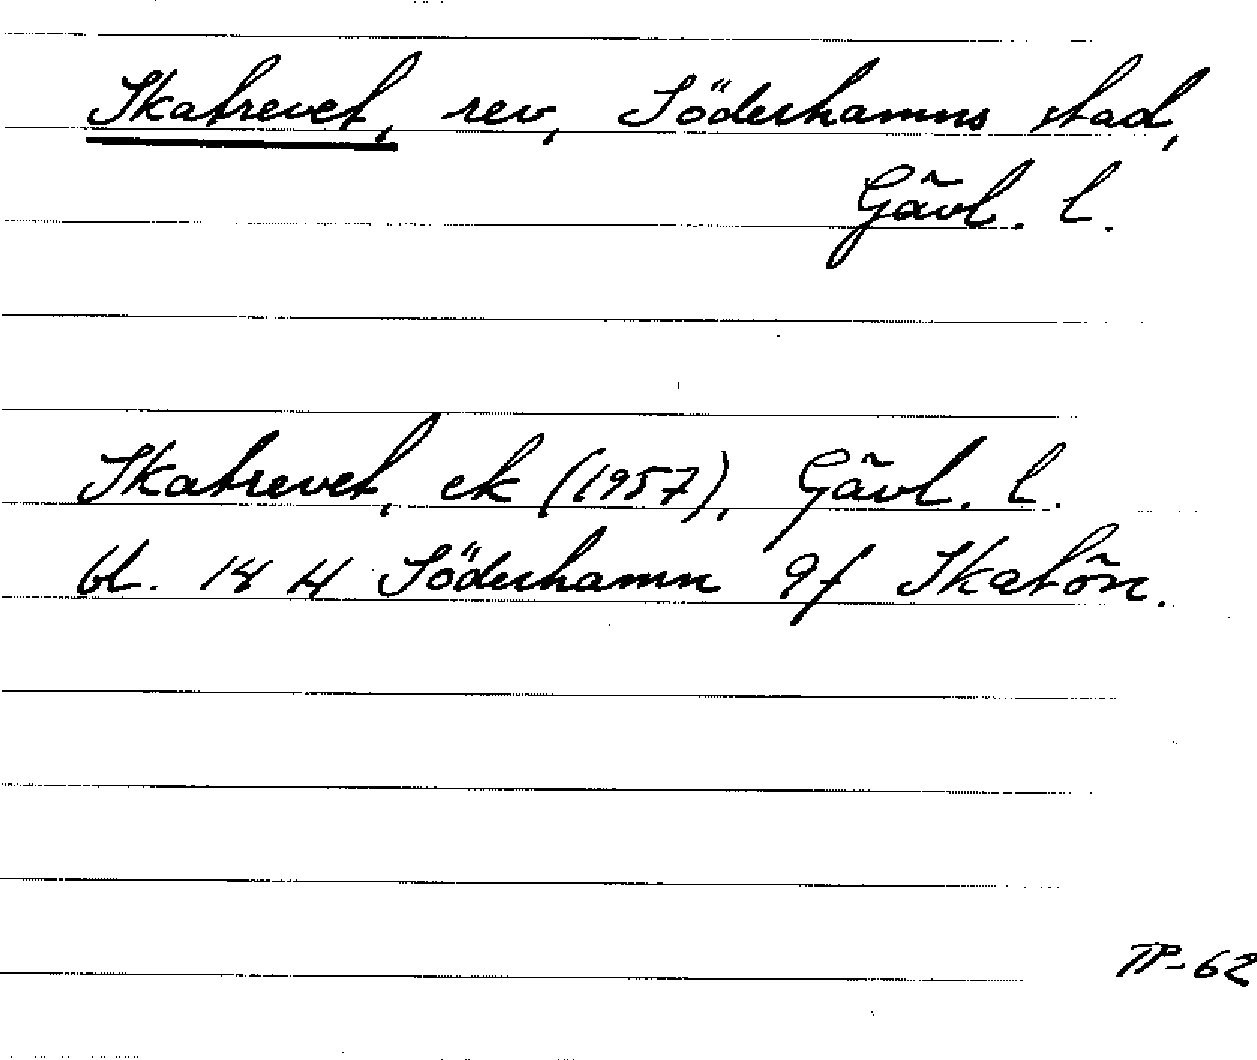 Skatrevet, rev, Söderhamns stad,
Gävl. l.
Skatrevet, ek (1957), Gävl. l.
bl. 14 H Söderhamn 9f Skatön.
TP-62